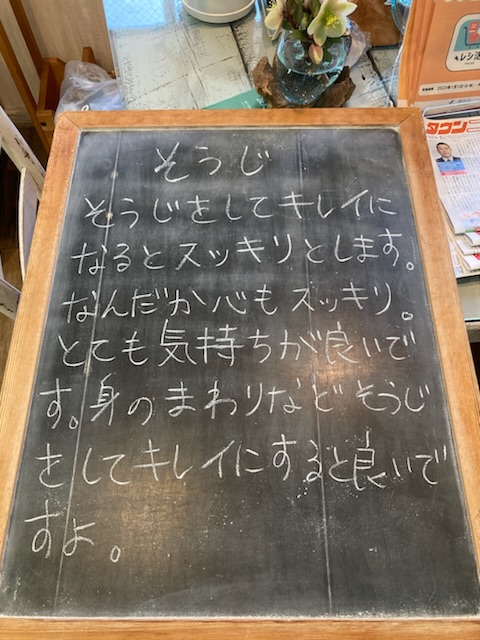 そうじ
そうじをしてキレイに
なるとスッキリとします。
なんだか心もスッキリ。
とても気持ちが良いで
す。身のまわりなどそうじ
をしてキレイにすると良いで
すよ。
タウンニ
レシ活